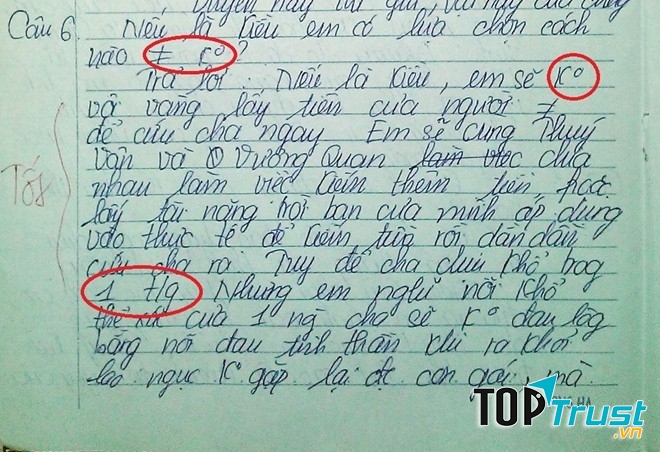 Câu 6. Nếu là Kiều em có lựa chọn cách
nào ≠ Kº?
Trả lời: Nếu là Kiều, em sẽ Kº
vội vàng lấy tiền của người ≠
để cứu cha ngay. Em sẽ cùng Thuý
Vân và Vương Quan làm việc chia
nhau làm việc kiếm thêm tiền hoặc
lấy tài năng trời ban của mình áp dụng
vào thực tế để kiếm tiền rồi dần dần
cứu cha ra. Tuy để cha chịu khổ
1 t/g. Nhưng em nghĩ nỗi khổ
thể xác của 1 ng cha sẽ Kº đau lòng
bằng nỗi đau tinh thần khi ra khỏi
lao ngục Kº gặp lại đc con gái, mà
Tốt
TOPTrust.vn